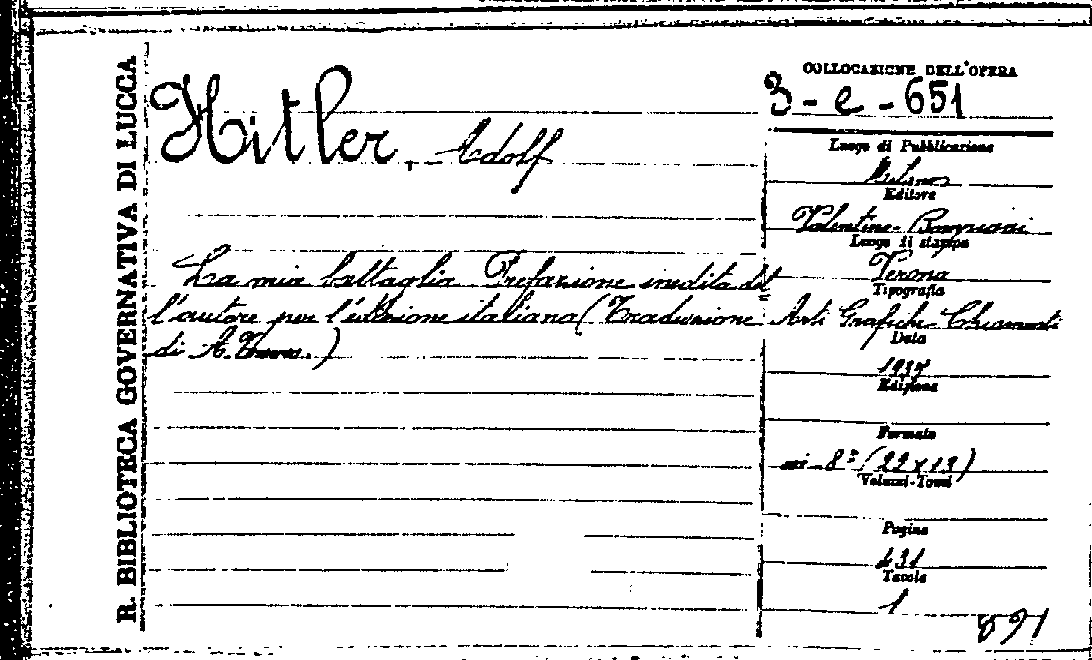 R. BIBLIOTECA GOVERNATIVA DI LUCCA
Hitler, Adolf
La mia battaglia Prefazione inedita del
l'autore per l'edizione italiana (Traduzione
di A.
COLLOCAZIONE DELL'OPERA
3-e-651
Luogo di Pubblicazione
Milano
Editore
Valentino Bompiani
Luogo di stampa
Verona
Tipografia
Arti Grafiche Chiamenti
Data
Edizione
Formato
in-8° (22x12)
Volumi-Tomi
Pagine
431
Tavole
1
891